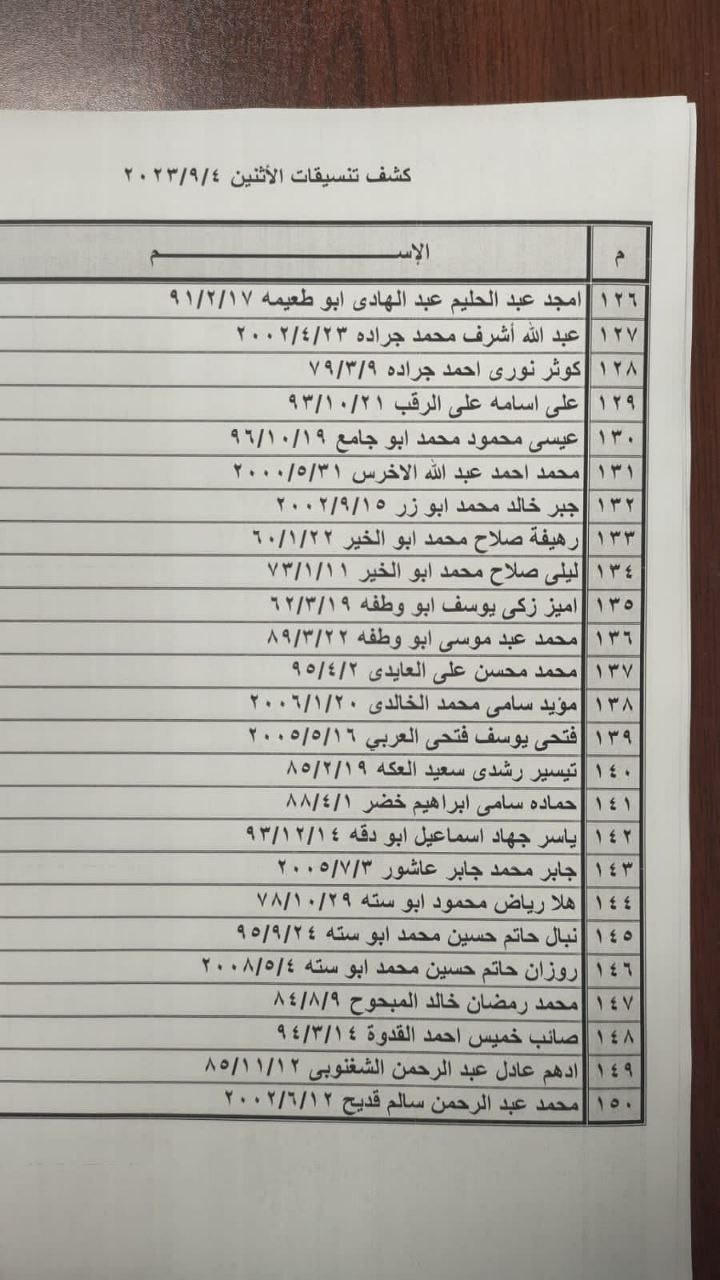 كشف تنسيقات الأثنين ٢٠٢٣/٩/٤
م الإســـــــــــــــــــــــم
١٢٦ امجد عبد الحليم عبد الهادى ابو طعيمه ٩١/٢/١٧
١٢٧ عبد الله أشرف محمد جراده ٢٠٠٢/٤/٢٣
١٢٨ كوثر نورى احمد جراده ٧٩/٣/٩
١٢٩ على اسامه على الرقب ٩٣/١٠/٢١
١٣٠ عيسى محمود محمد ابو جامع ٩٦/١٠/١٩
١٣١ محمد احمد عبد الله الاخرس ٢٠٠٠/٥/٣١
١٣٢ جبر خالد محمد ابو زر ٢٠٠٢/٩/١٥
١٣٣ رهيفة صلاح محمد ابو الخير ٦٠/١/٢٢
١٣٤ ليلى صلاح محمد ابو الخير ٧٣/١/١١
١٣٥ اميز زكى يوسف ابو وطفه ٦٢/٣/١٩
١٣٦ محمد عبد موسى ابو وطفه ٨٩/٣/٢٢
١٣٧ محمد محسن على العايدى ٩٥/٤/٢
١٣٨ مؤيد سامى محمد الخالدى ٢٠٠٦/١/٢٠
١٣٩ فتحى يوسف فتحى العربي ٢٠٠٥/٥/١٦
١٤٠ تيسير رشدى سعيد العكه ٨٥/٢/١٩
١٤١ حماده سامى ابراهيم خضر ٨٨/٤/١
١٤٢ ياسر جهاد اسماعيل ابو دقه ٩٣/١٢/١٤
١٤٣ جابر محمد جابر عاشور ٢٠٠٥/٧/٣
١٤٤ هلا رياض محمود ابو سته ٧٨/١٠/٢٩
١٤٥ نبال حاتم حسين محمد ابو سته ٩٥/٩/٢٤
١٤٦ روزان حاتم حسين محمد ابو سته ٢٠٠٨/٥/٤
١٤٧ محمد رمضان خالد المبحوح ٨٤/٨/٩
١٤٨ صائب خميس احمد القدوة ٩٤/٣/١٤
١٤٩ ادهم عادل عبد الرحمن الشغنوبى ٨٥/١١/١٢
١٥٠ محمد عبد الرحمن سالم قديح ٢٠٠٢/٦/١٢